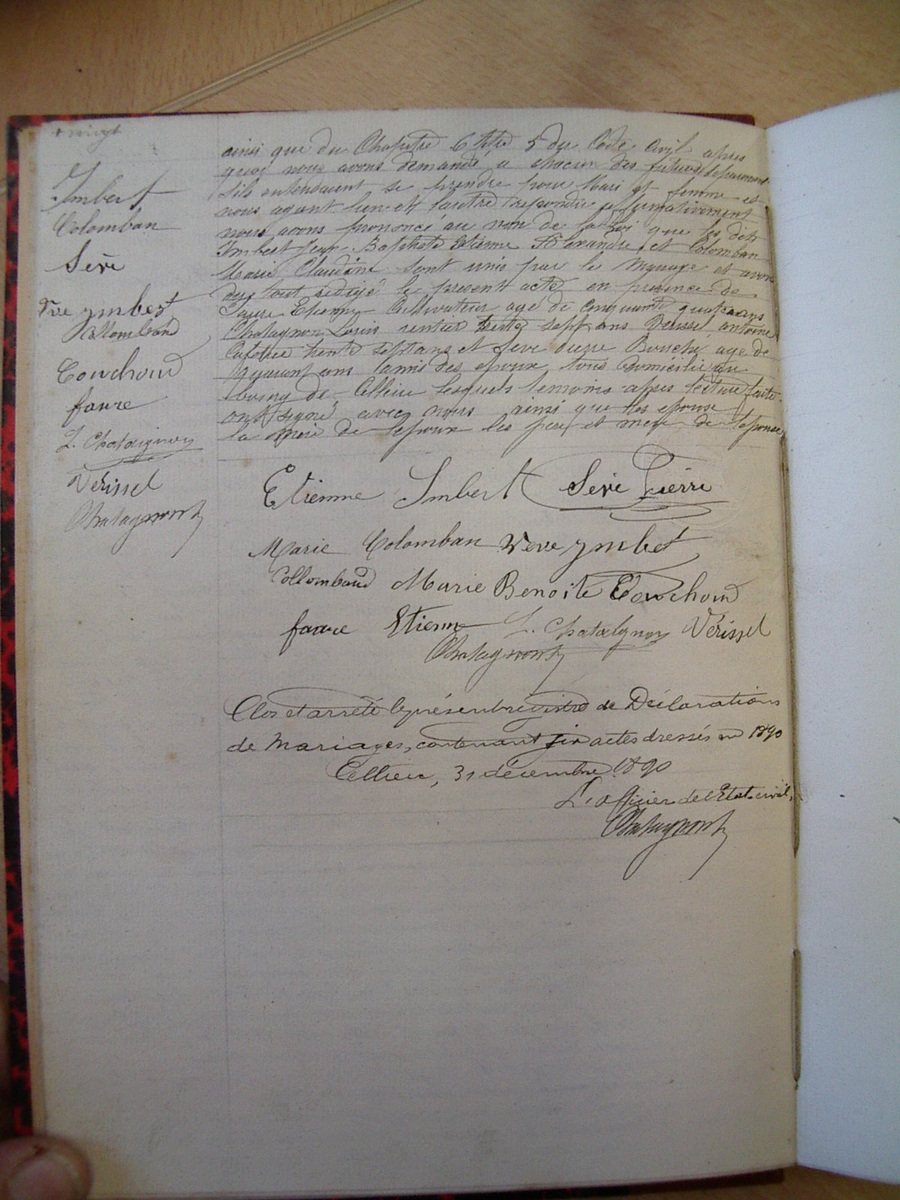 + vingt
Imbert
Colomban
Sève
Vve ymbert
Collomband
Couchoud
faure
L. Chataignon
Vérissel
Chataignon
ainsi que du Chapitre 6 titre 5 du Code Civil après
quoi nous avons demandé a chacun des futurs séparément
s'ils entendaient se prendre pour Mari et femme et
nous ayant l'un et l'autre repondu affirmativement
nous avons prononcé au nom de la Loi que les dits
Imbert Jean-Baptiste Etienne Alexandre, et Colomban
Marie Claudine sont unis par le Mariage et avons
du tout rédigé le present acte en presence de
Faure Etienne Cultivateur agé de cinquante quatre ans
Chatagnon Louis rentier trente sept ans Vérissel antoine
trente sept ans et Seve pierre Boucher agé de
ans tamis des epoux, tous domicilié au
bourg de Cellieu lesquels temoins apres lecture faite
ont signé avec nous ainsi que les epoux
la mère de l'epoux les père et mere de l'epouse
Etienne Imbert Sève Pierre
Marie Colomban Veve ymbert
Collomband Marie Benoite Couchoud
faure Etienne L. Chataignon Vérissel
Chataignon
Clos et arrêté le présent registre de Déclarations
de Mariages, contenant six actes dressés en 1890
Cellieu, 31 décembre 1890
L'officier de l'Etat civil,
Chataignon